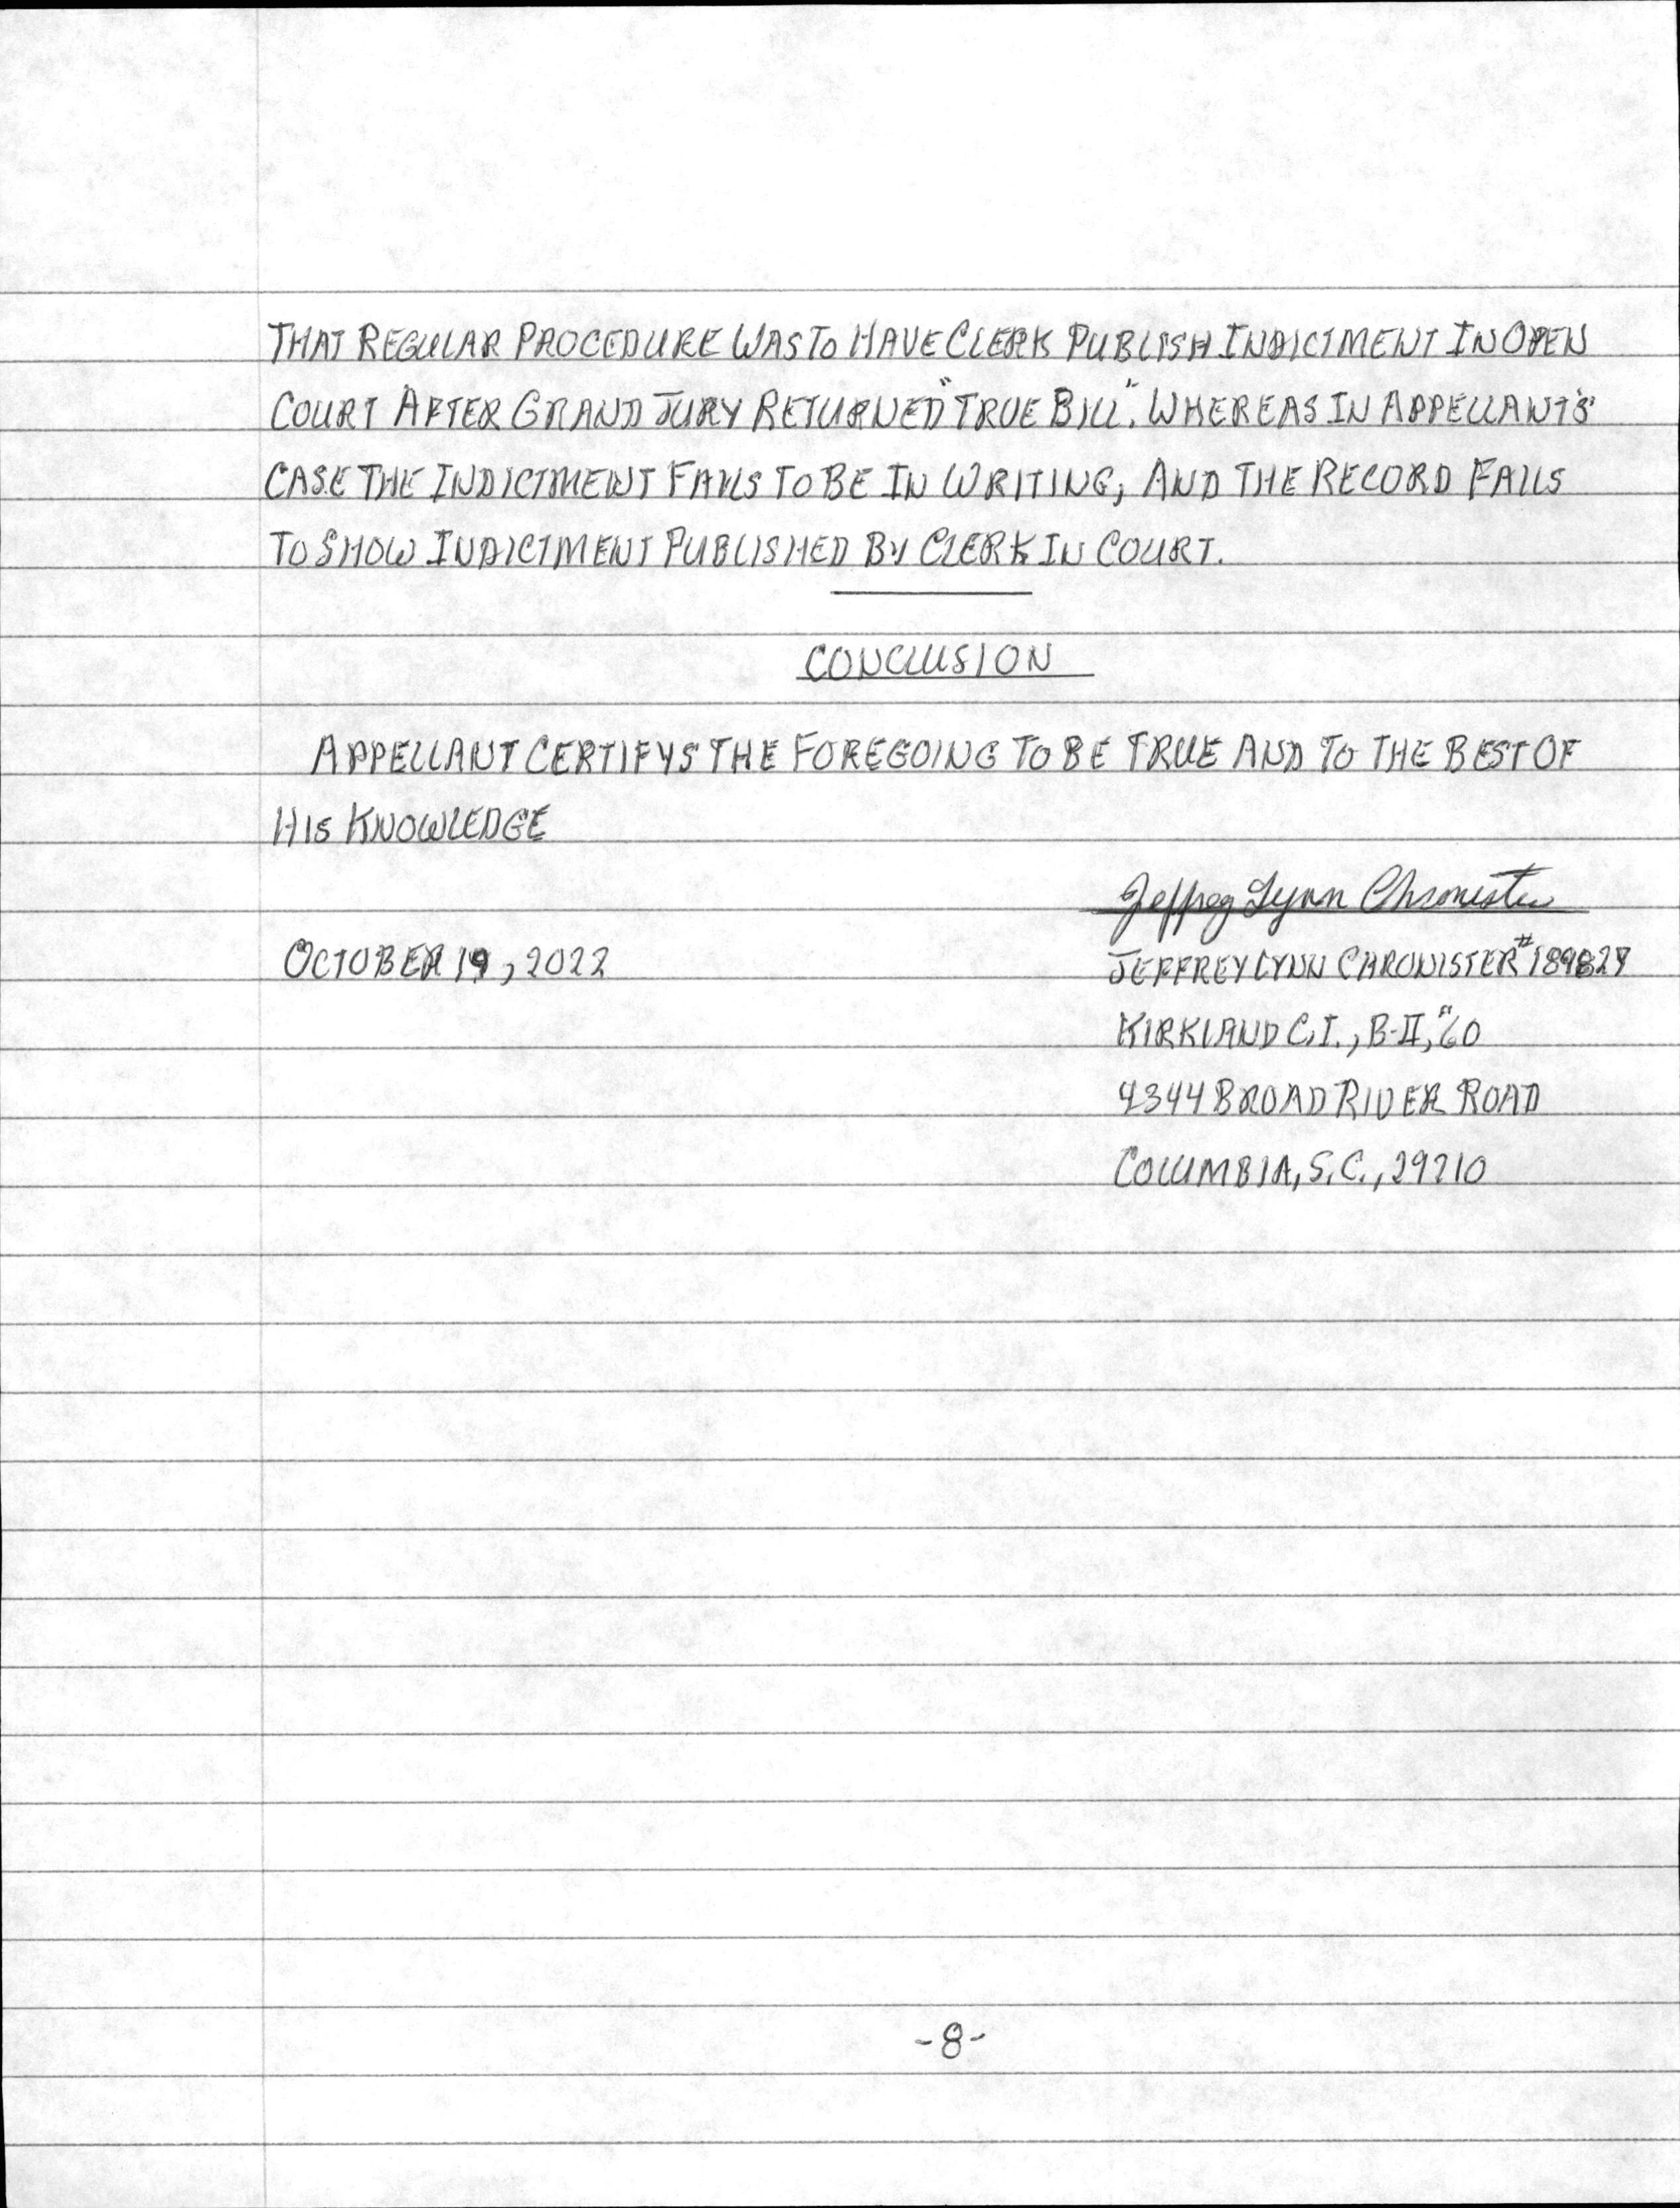 THAT REGULAR PROCEDURE WAS TO HAVE CLERK PUBLISH INDICTMENT IN OPEN
COURT AFTER GRAND JURY RETURNED "TRUE BILL". WHEREAS IN APPELLANT'S
CASE THE INDICTMENT FAILS TO BE IN WRITING, AND THE RECORD FAILS
TO SHOW INDICTMENT PUBLISHED BY CLERK IN COURT.
CONCLUSION
APPELLANT CERTIFYS THE FOREGOING TO BE TRUE AND TO THE BEST OF
HIS KNOWLEDGE
Jeffrey Lynn Chronister
OCTOBER 19, 2022
JEFFREY LYNN CHRONISTER
KIRKLAND C.I., B-II,
4344 BROAD RIVER ROAD
COLUMBIA, S.C., 29210
-8-